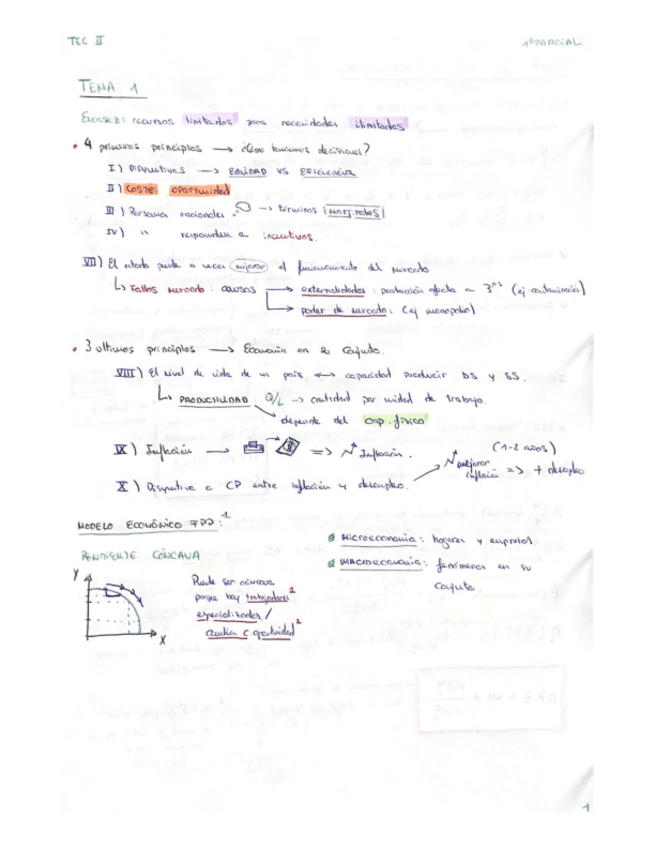 TEC II
1º PARCIAL
TEMA 1
Escasez: recursos limitados para necesidades ilimitadas
• 4 primeros principios → ¿Cómo tomamos decisiones?
I) Disyuntivas → EQUIDAD VS EFICIENCIA
II) COSTE OPORTUNIDAD
III) Personas racionales → términos marginales
IV) " responden a incentivos.
VII) El estado puede a veces mejorar el funcionamiento del mercado
↳ Fallos mercado: causas → externalidades: producción afecta a 3ºs (ej contaminación)
→ poder de mercado: (ej monopolio)
• 3 ultimos principios → Economía en su Conjunto.
VIII) El nivel de vida de un país ↔ capacidad producir BS y SS.
↳ PRODUCTIVIDAD: Q/L → cantidad por unidad de trabajo.
depende del cap. físico
IX) Inflación → => Inflación.
(1-2 años)
X) Disyuntiva a CP entre inflación y desempleo.
inflación => + desempleo
MODELO ECONÓMICO FPP: 1
PENDIENTE CÓNCAVA
Y
X
Puede ser cóncava
porque hay trabajadores 1
especializados /
cambia c oportunidad 2
MICROECONOMIA: hogares y empresas
MACROECONOMIA: fenómenos en su
conjunto
1